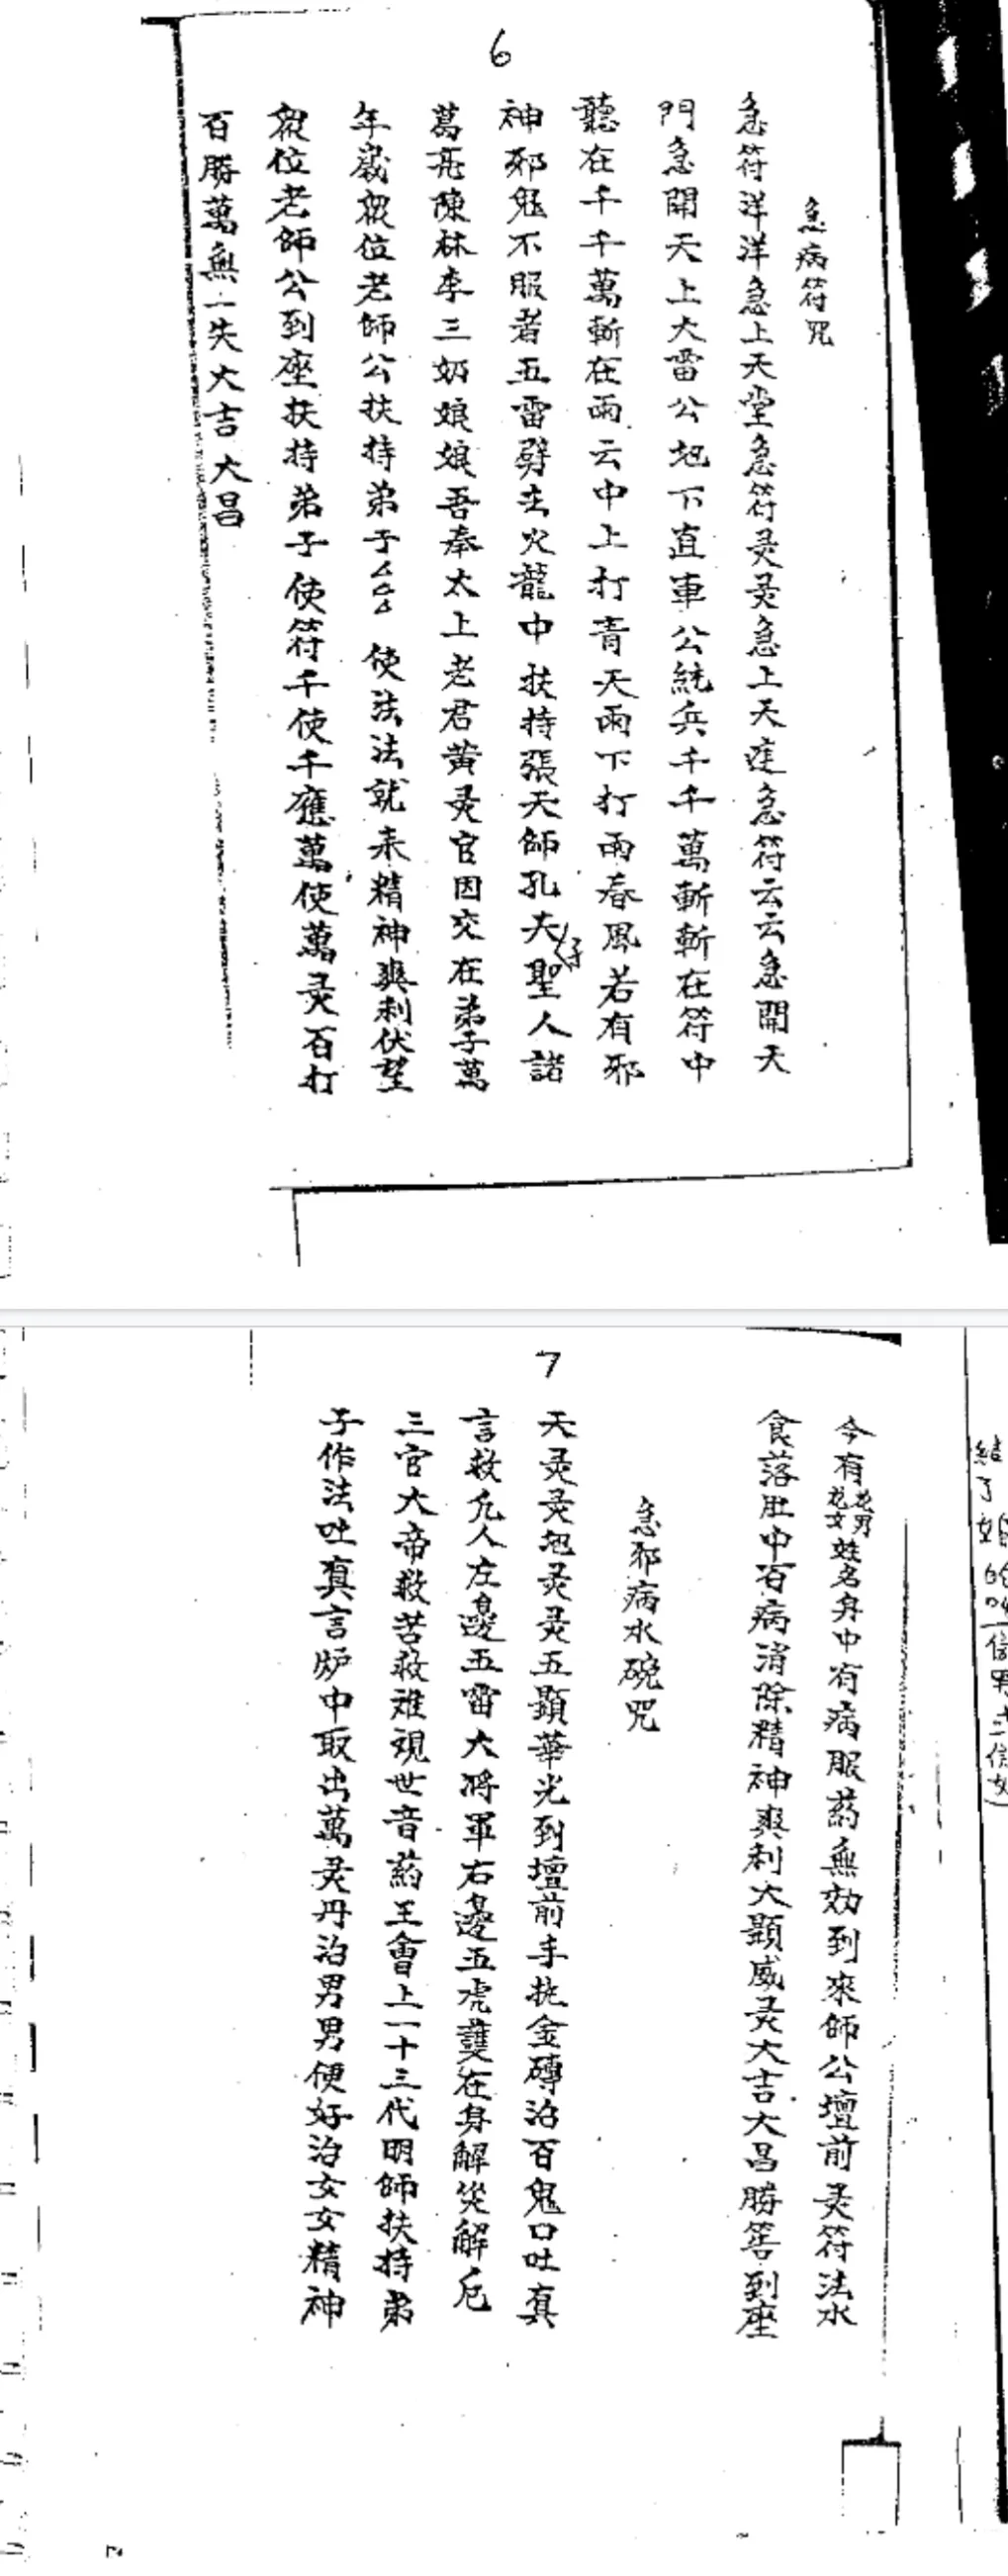 6
急病符咒
急符洋洋急上天堂急符灵灵急上天達急符云云急開天
門急開天上大雷公地下直車公統兵千千萬斬斬在符中
聽在千千萬斬在雨云中上打青天雨下打雨春風若有邪
神邪鬼不服者五雷劈主火龍中扶持張天師孔夫子聖人諸
葛亮陳林李三奶娘娘吾奉太上老君黄灵官因交在弟子萬
年歲眾位老師公扶持弟子厶厶厶使法法就来精神爽利伏望
眾位老師公到座扶持弟子使符千使千應萬使萬灵百打
百勝萬無一失大吉大昌
7
結了婚的叫信男
信女
今有花男花女姓名身中有病服葯無効到來師公壇前灵符法水
食落肚中百病消除精神爽利大顯威灵大吉大昌勝筶到座
急邪病水碗咒
天灵灵地灵灵五顯華光到壇前手扰金磚治百鬼口吐真
言救凡人左邊五雷大將軍右邊五虎護在身解災解厄
三官大帝救苦救难視世音葯王會上一十三代明師扶持弟
子作法吐真言炉中取出萬灵丹治男男便好治女女精神